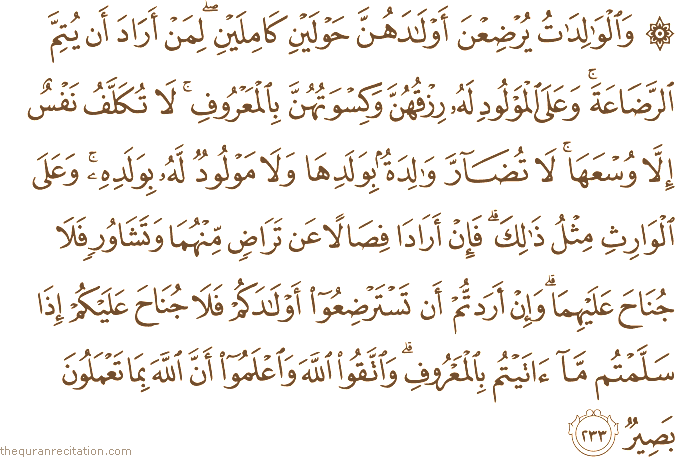 ۞ وَٱلْوَٰلِدَٰتُ يُرْضِعْنَ أَوْلَٰدَهُنَّ حَوْلَيْنِ كَامِلَيْنِ ۖ لِمَنْ أَرَادَ أَن يُتِمَّ
ٱلرَّضَاعَةَ ۚ وَعَلَى ٱلْمَوْلُودِ لَهُۥ رِزْقُهُنَّ وَكِسْوَتُهُنَّ بِٱلْمَعْرُوفِ ۚ لَا تُكَلَّفُ نَفْسٌ
إِلَّا وُسْعَهَا ۚ لَا تُضَآرَّ وَٰلِدَةٌۢ بِوَلَدِهَا وَلَا مَوْلُودٌ لَّهُۥ بِوَلَدِهِۦ ۚ وَعَلَى
ٱلْوَارِثِ مِثْلُ ذَٰلِكَ ۗ فَإِنْ أَرَادَا فِصَالًا عَن تَرَاضٍ مِّنْهُمَا وَتَشَاوُرٍ فَلَا
جُنَاحَ عَلَيْهِمَا ۗ وَإِنْ أَرَدتُّمْ أَن تَسْتَرْضِعُوٓا۟ أَوْلَٰدَكُمْ فَلَا جُنَاحَ عَلَيْكُمْ إِذَا
سَلَّمْتُم مَّآ ءَاتَيْتُم بِٱلْمَعْرُوفِ ۗ وَٱتَّقُوا۟ ٱللَّهَ وَٱعْلَمُوٓا۟ أَنَّ ٱللَّهَ بِمَا تَعْمَلُونَ
بَصِيرٌ ٢٣٣
thequranrecitation.com